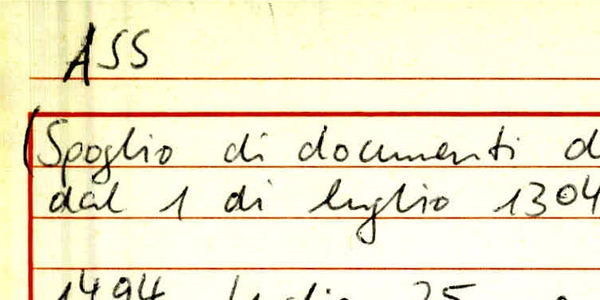 ASS
(Spoglio di documenti d
dal 1 di luglio 1304
1494 luglio 25